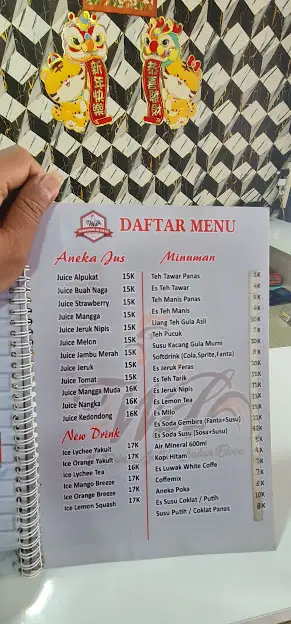 新年快樂
新喜發財
DAFTAR MENU
Aneka Jus
Juice Alpukat 15K
Juice Buah Naga 15K
Juice Strawberry 15K
Juice Mangga 15K
Juice Jeruk Nipis 15K
Juice Melon 15K
Juice Jambu Merah 15K
Juice Jeruk 15K
Juice Tomat 15K
Juice Mangga Muda 16K
Juice Nangka 16K
Juice Kedondong 16K
New Drink
Ice Lychee Yakult 17K
Ice Orange Yakult 17K
Ice Lychee Tea 16K
Ice Mango Breeze 17K
Ice Orange Breeze 17K
Ice Lemon Squash 17K
Minuman
Teh Tawar Panas
Es Teh Tawar
Teh Manis Panas
Es Teh Manis
Liang Teh Gula Asli
Teh Pucuk
Susu Kacang Gula Murni
Softdrink (Cola,Sprite,Fanta)
Es Jeruk Peras
Es Teh Tarik
Es Jeruk Nipis
Es Lemon Tea
Es Milo
Es Soda Gembira (Fanta+Susu)
Es Soda Susu (Sosa+Susu)
Air Mineral 600ml
Kopi Hitam
Es Luwak White Coffe
Coffemix
Aneka Poka
Es Susu Coklat / Putih 10K
Susu Putih / Coklat Panas 8K